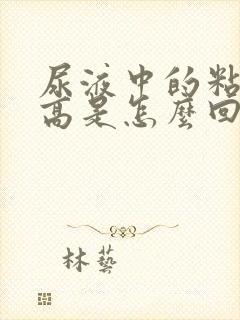 尿液中的粘
高是怎麼回
林藝